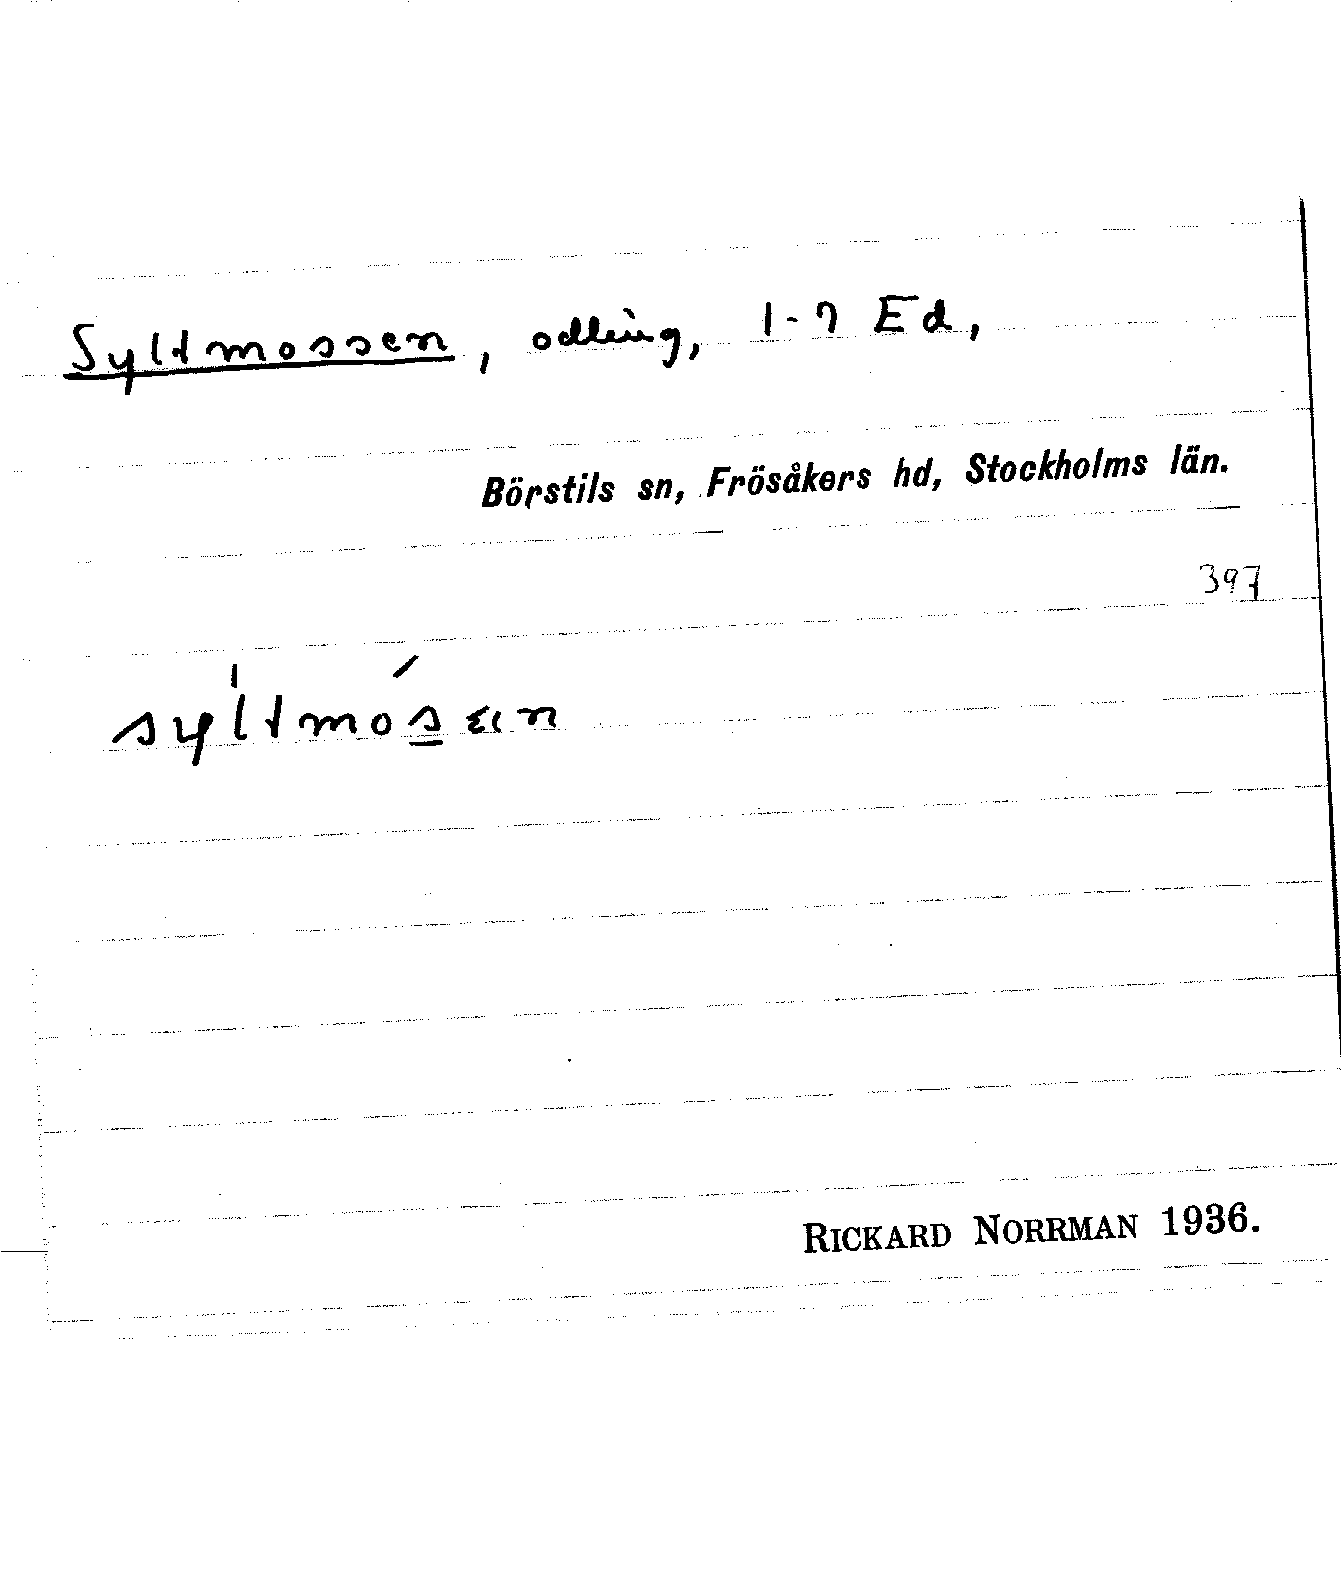 Syltmossen, odling, 1-7 Ed,
Börstils sn, Frösåkers hd, Stockholms län.
397
syltmosɛn
RICKARD NORRMAN 1936.